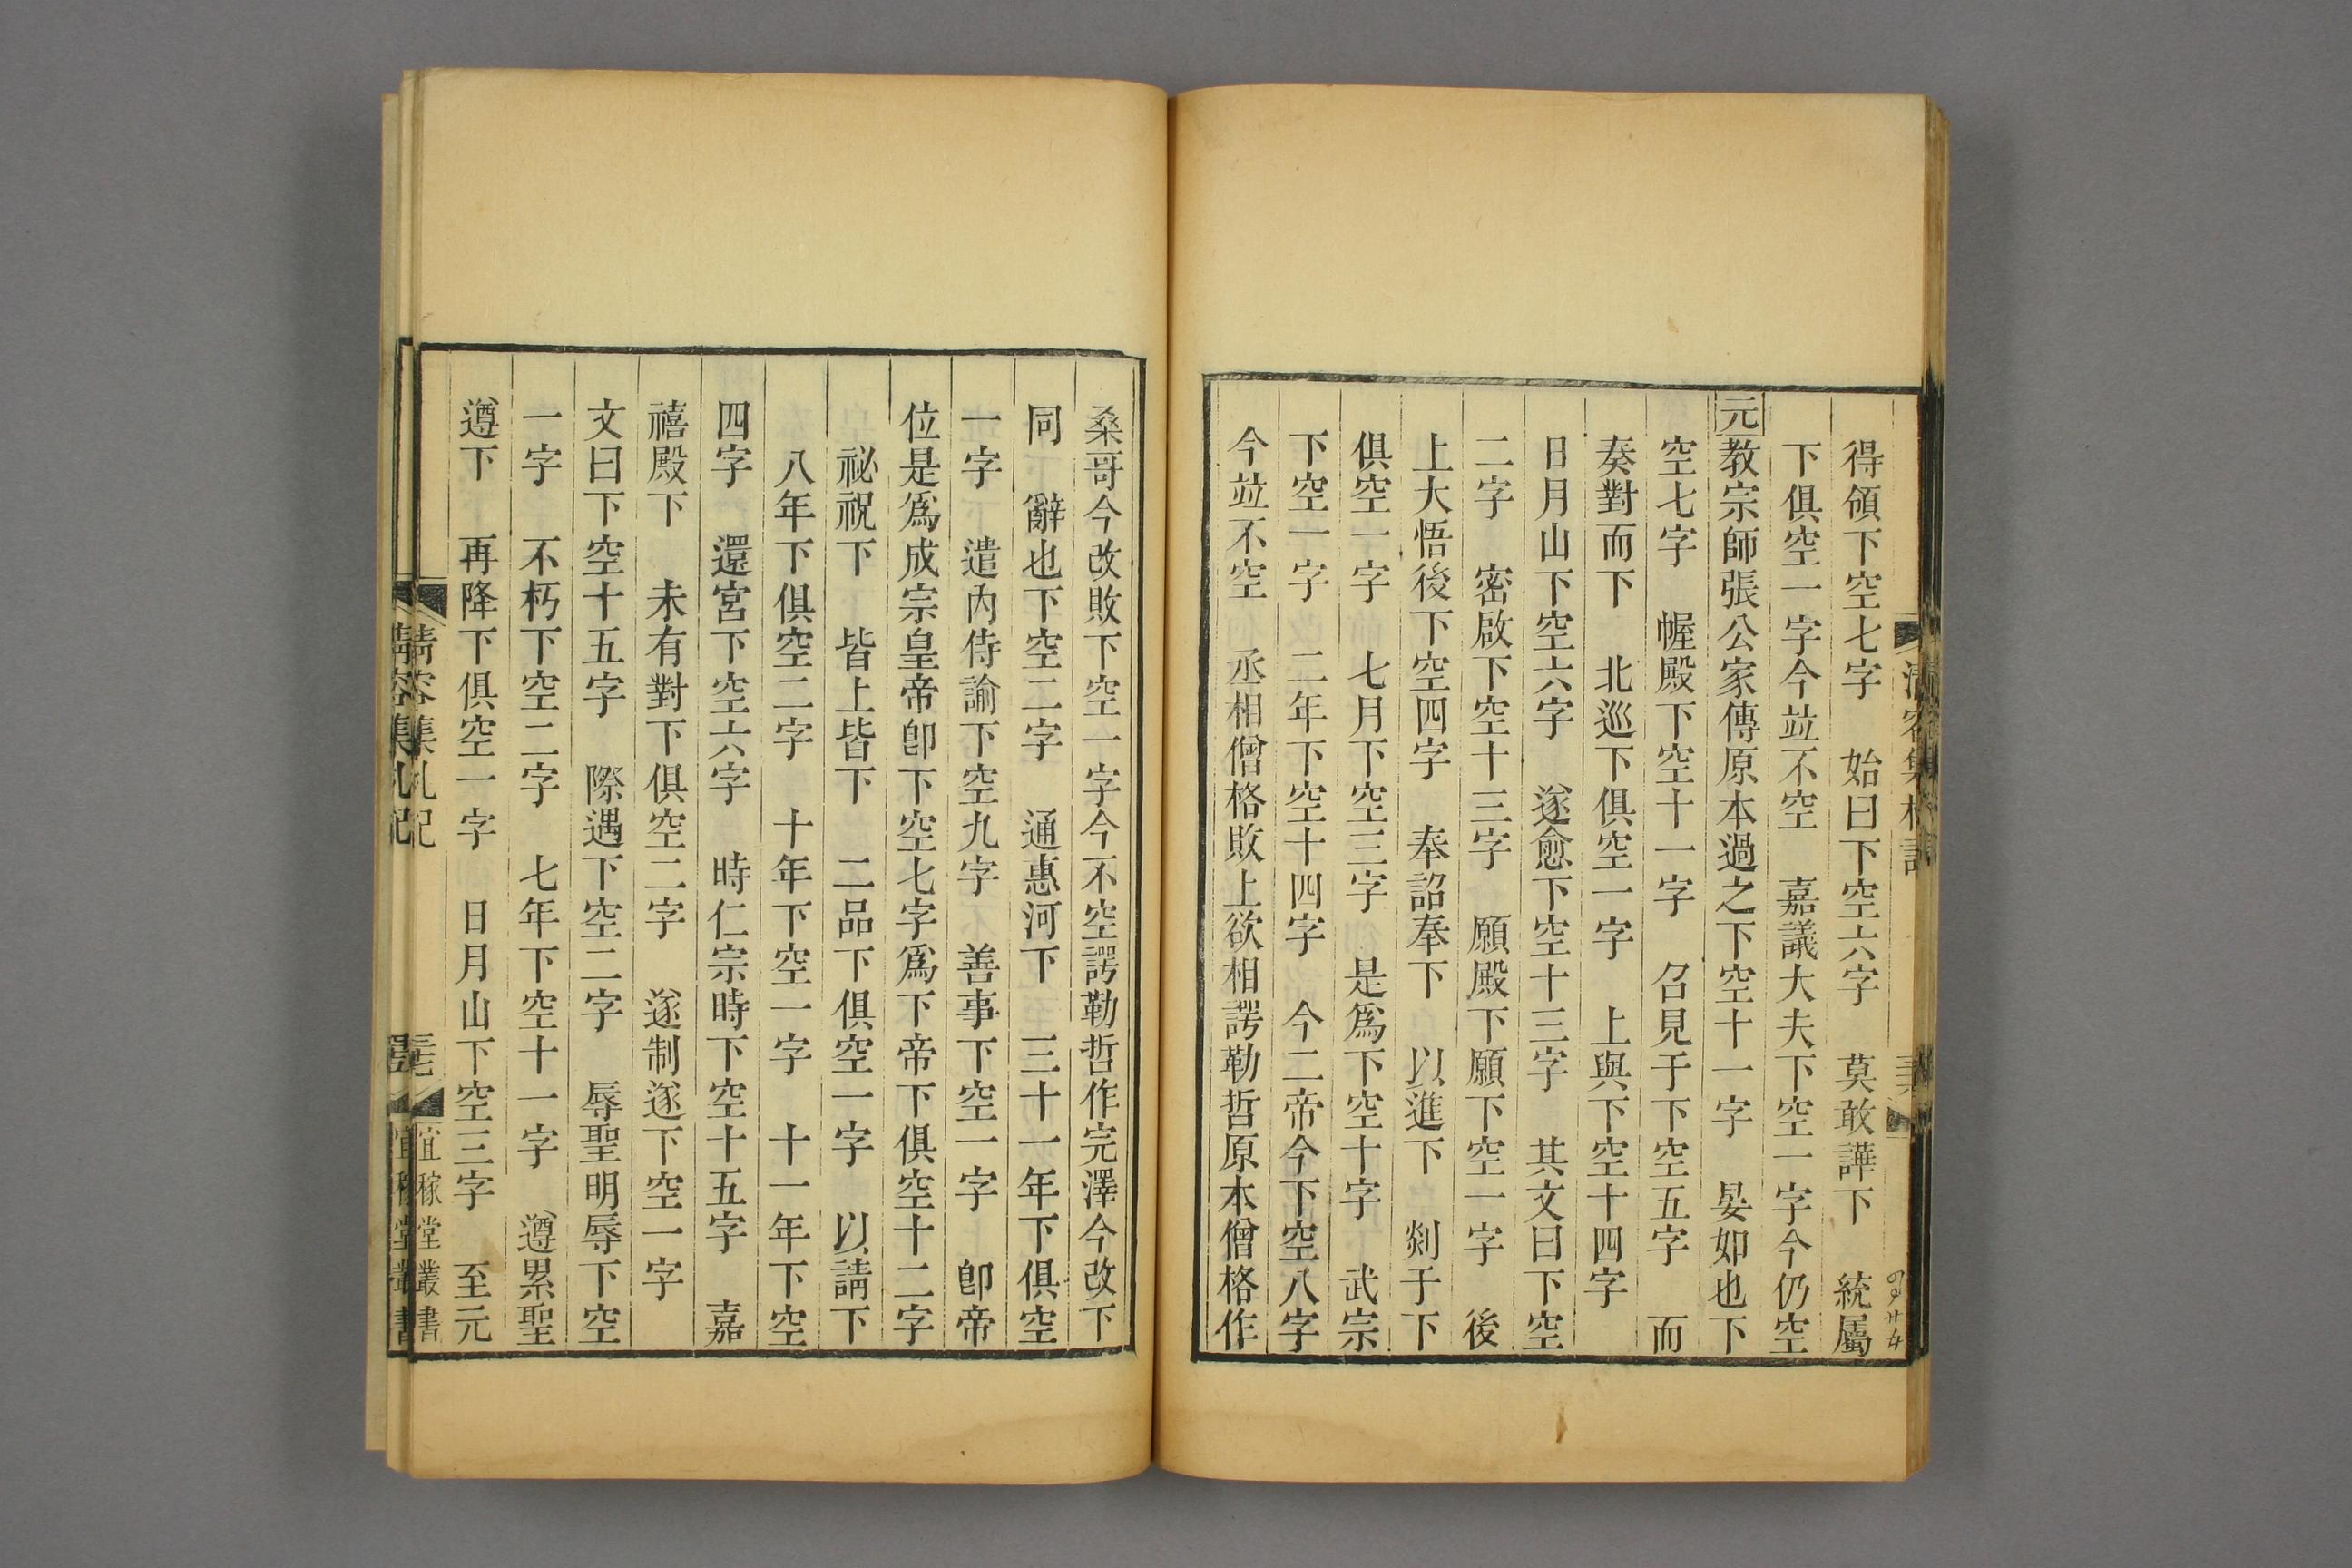 得領下空七字　始曰下空六字　莫敢譁下　統屬
下俱空一字今並不空　嘉議大夫下空一字今仍空
元教宗師張公家傳原本過之下空十一字　晏如也下
空七字　幄殿下空十一字　召見于下空五字　而
奏對而下　北巡下俱空一字　上與下空十四字
日月山下空六字　遂愈下空十三字　其文曰下空
二字　密啟下空十三字　願殿下願下空一字　後
上大悟後下空四字　奉詔奉下　以進下　剡于下
俱空一字　七月下空三字　是為下空十字　武宗
下空一字　二年下空十四字　今二帝今下空八字
今並不空　丞相僧格敗上欲相諤勒哲原本僧格作
桑哥今改敗下空一字今不空諤勒哲作完澤今改下
同　辭也下空二字　通惠河下　三十一年下俱空
一字　遣內侍諭下空九字　善事下空一字　卽帝
位是爲成宗皇帝卽下空七字爲下帝下俱空十二字
祕祝下　皆上皆下　二品下俱空一字　以請下
八年下俱空二字　十年下空一字　十一年下空
四字　還宮下空六字　時仁宗時下空十五字　嘉
禧殿下　未有對下俱空二字　遂制遂下空一字
文曰下空十五字　際遇下空二字　辱聖明辱下空
一字　不朽下空二字　七年下空十一字　遵累聖
遵下　再降下俱空一字　日月山下空三字　至元
清容集札記
宜稼堂叢書